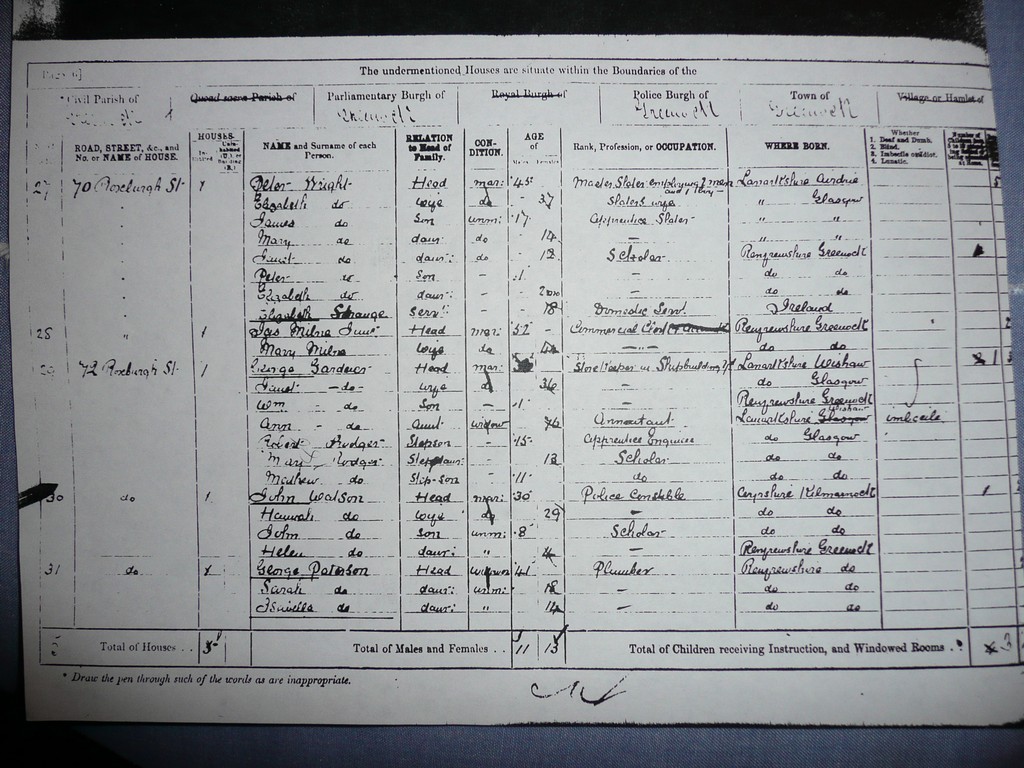 Page 6]
The undermentioned Houses are situate within the Boundaries of the
Civil Parish of Quoad sacra Parish of Parliamentary Burgh of Royal Burgh of Police Burgh of Town of Village or Hamlet of
Greenock Greenock Greenock
ROAD, STREET, &c., and No. or NAME of HOUSE. HOUSES. NAME and Surname of each Person. RELATION to Head of Family. CON-DITION. AGE of Rank, Profession, or OCCUPATION. WHERE BORN. Whether 1. Deaf and Dumb. 2. Blind. 3. Imbecile or Idiot. 4. Lunatic.
27 70 Roxburgh St 1 Peter Wright Head mar: 45 Master Slater employing men and 1 boy Lanarkshire Airdrie 5
Elizabeth do wife do 37 Slaters wife " Glasgow
James do Son unm: 17 Apprentice Slater " "
Mary do daur: do 14 — " "
Janet do daur: do 12 Scholar Renfrewshire Greenock
Peter do son - 1 — do do
Elizabeth do daur: - — do do
Elizabeth Serv: - 18 Domestic Serv. Ireland
28 " 1 Jas Milne Head mar: 52 - Commercial Renfrewshire Greenock
Mary Milne wife do —"— do do
29 72 Roxburgh St 1 George Gardener Head mar: Storekeeper in Shipbuilding Lanarkshire Wishaw 1
Janet - do - wife d 36 — do Glasgow
Wm - do Son - 1 — Renfrewshire Greenock
Ann - do Aunt widow 76 Annuitant Lanarkshire Wishaw Glasgow imbecile
Robert Rodger Stepson - 15 Apprentice do Glasgow
Mary Rodger Stepdaur: - 13 Scholar do do
Mathew do Step-son - 11 do do do
30 do 1 John Watson Head mar: 30 Police Constable Ayrshire Kilmarnock 1
Hannah do wife do 29 — do do
John do son unm: 8 Scholar do do
Helen do daur: " 4 — Renfrewshire Greenock
31 do 1 George Paterson Head widower 41 Plumber Renfrewshire do
Sarah do daur: unm: 18 — do do
Isabella do daur: " 14 — do do
5 Total of Houses . . 5 Total of Males and Females . . 11 13 Total of Children receiving Instruction, and Windowed Rooms . 3
* Draw the pen through such of the words as are inappropriate.